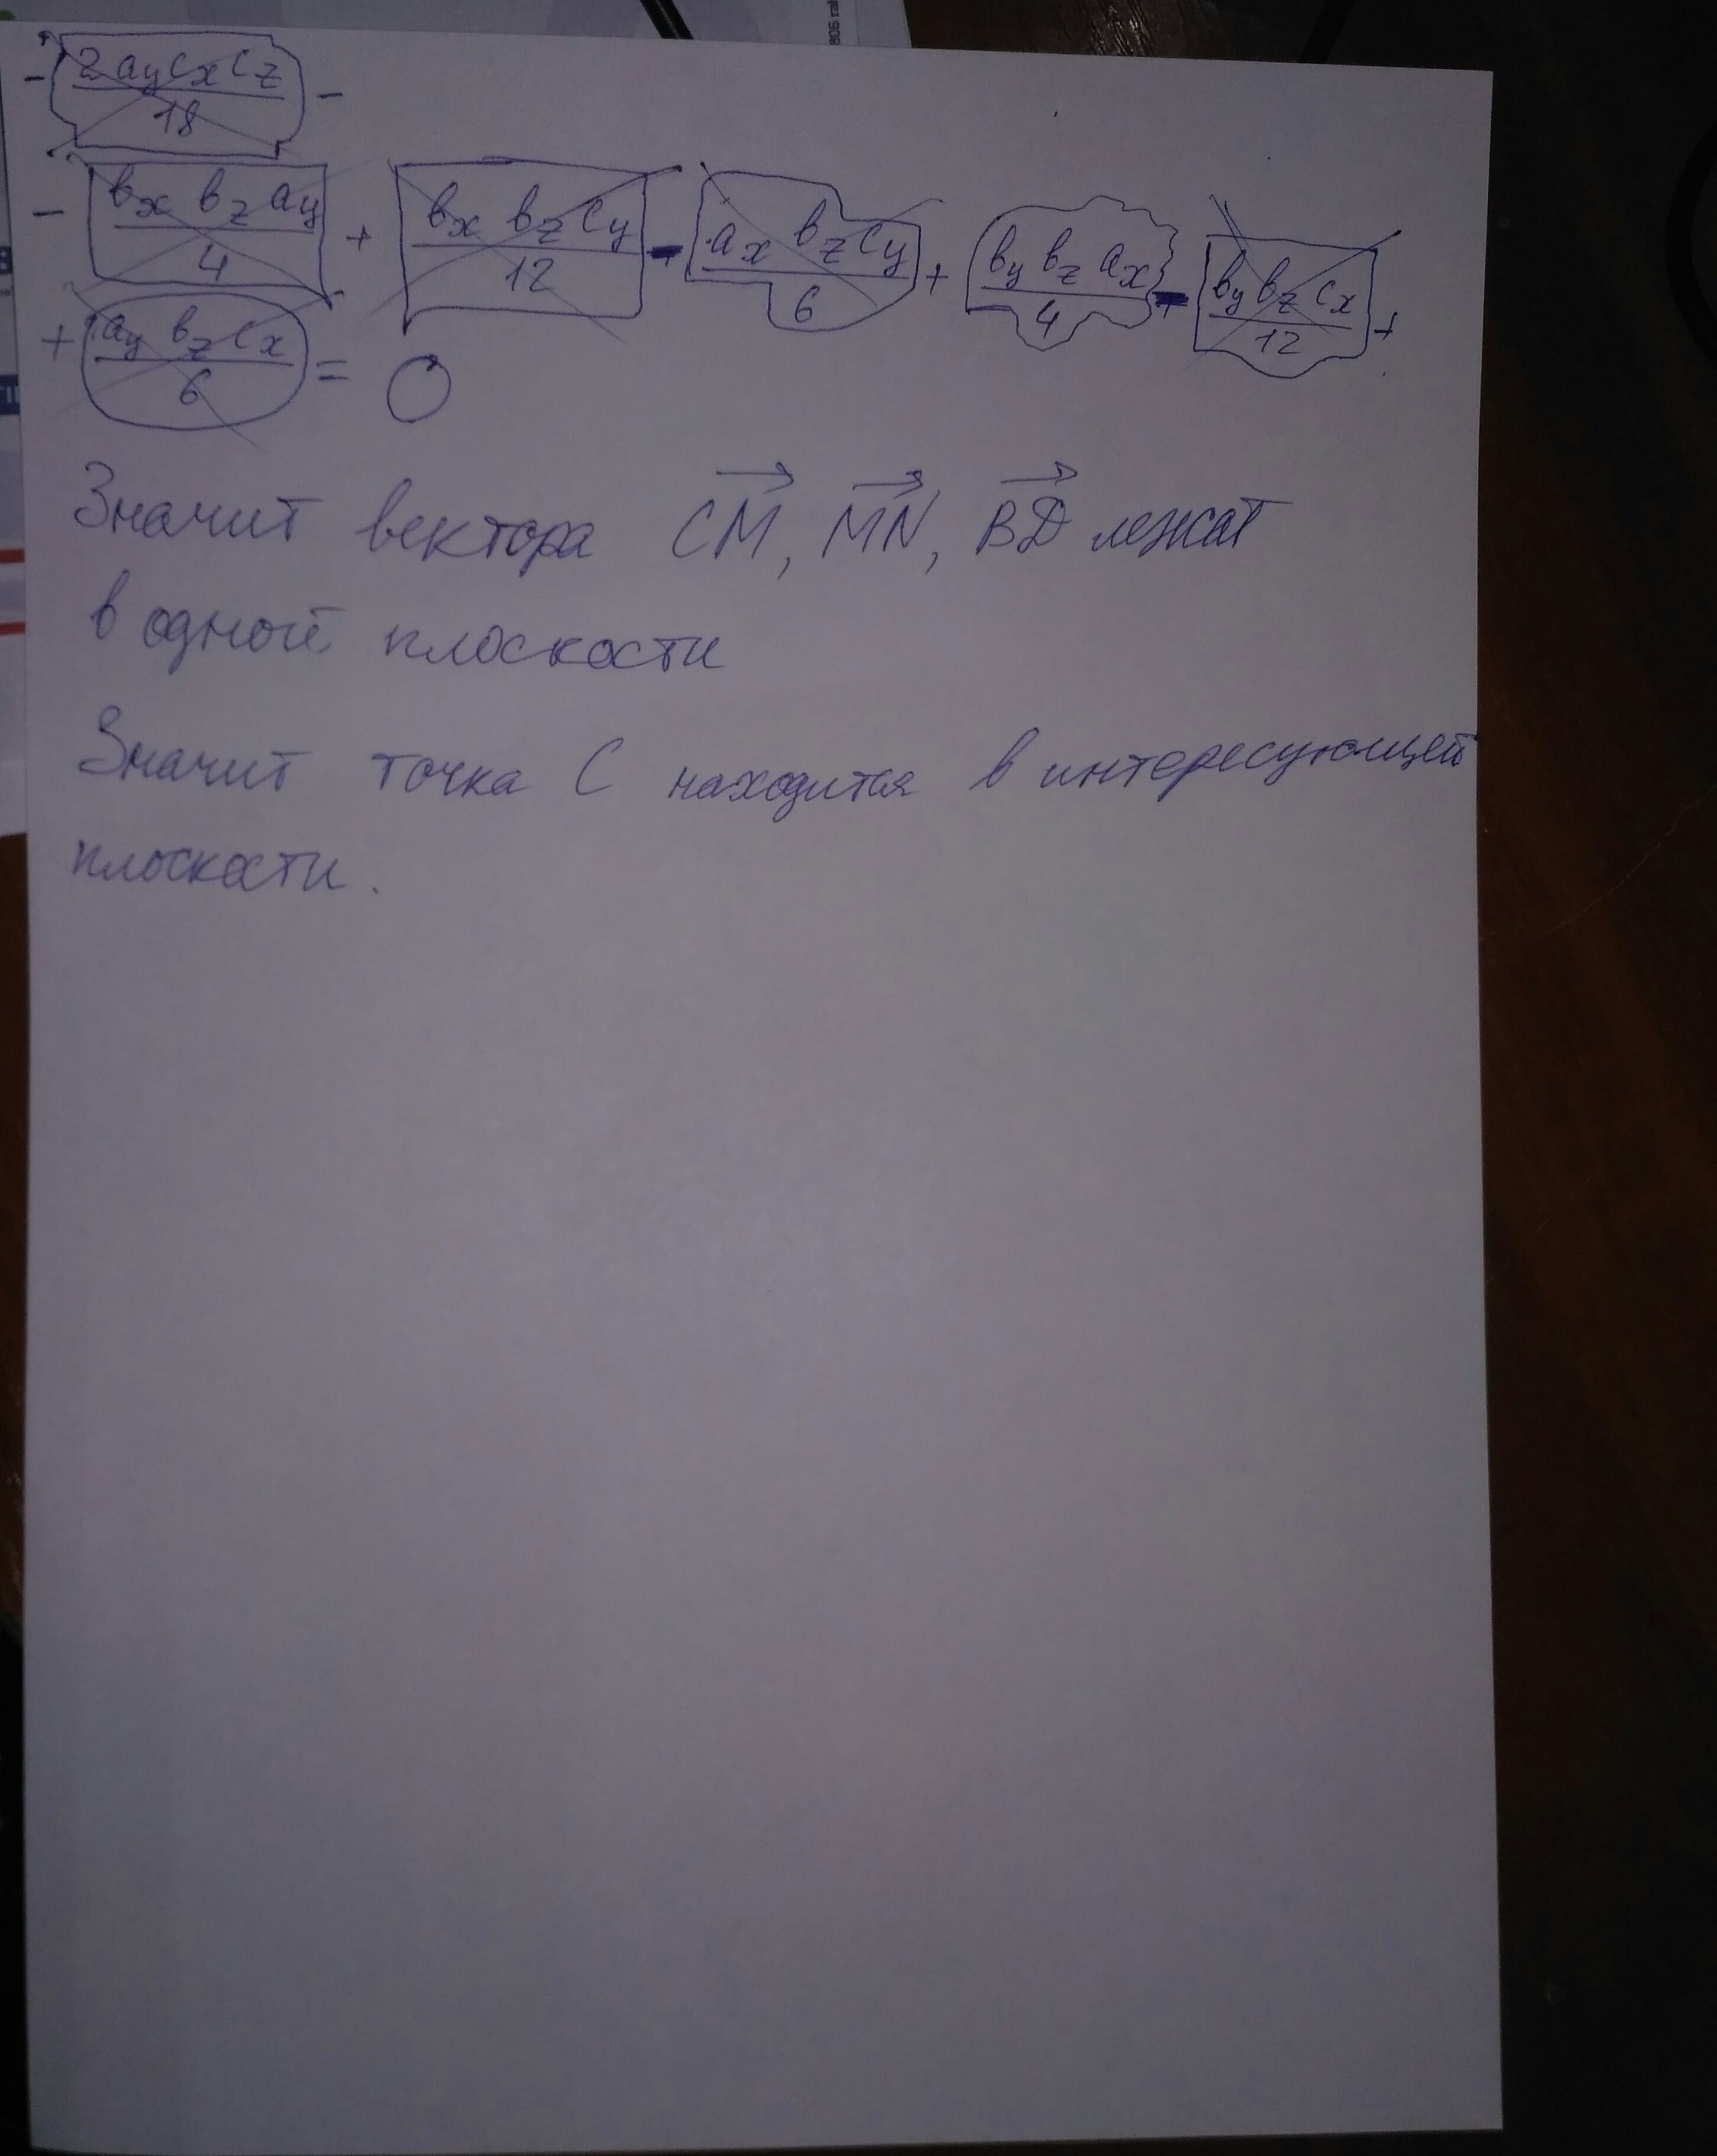 - 2 ay cx cz / 18 -
- bx bz ay / 4 + bx bz cy / 12 - ax bz cy / 6 + by bz ax / 4 - by bz cx / 12 +
+ ay bz cx / 6 = 0
Значит вектора CM, MN, BD лежат
в одной плоскости
Значит точка C находится в интересующей
плоскости.